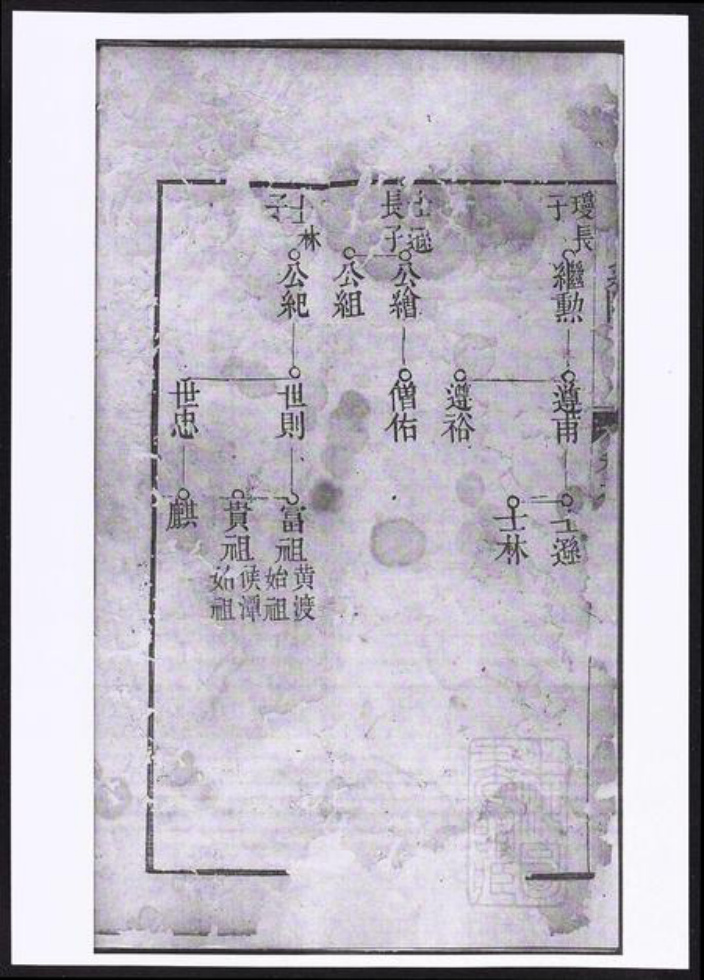 瓊長子
繼勲
遵甫
士遜
士林
遵裕
士遜長子
公繪
僧佑
公組
士林子
公紀
世則
富祖
黄渡始祖
貴祖
侯潭始祖
世忠
麒